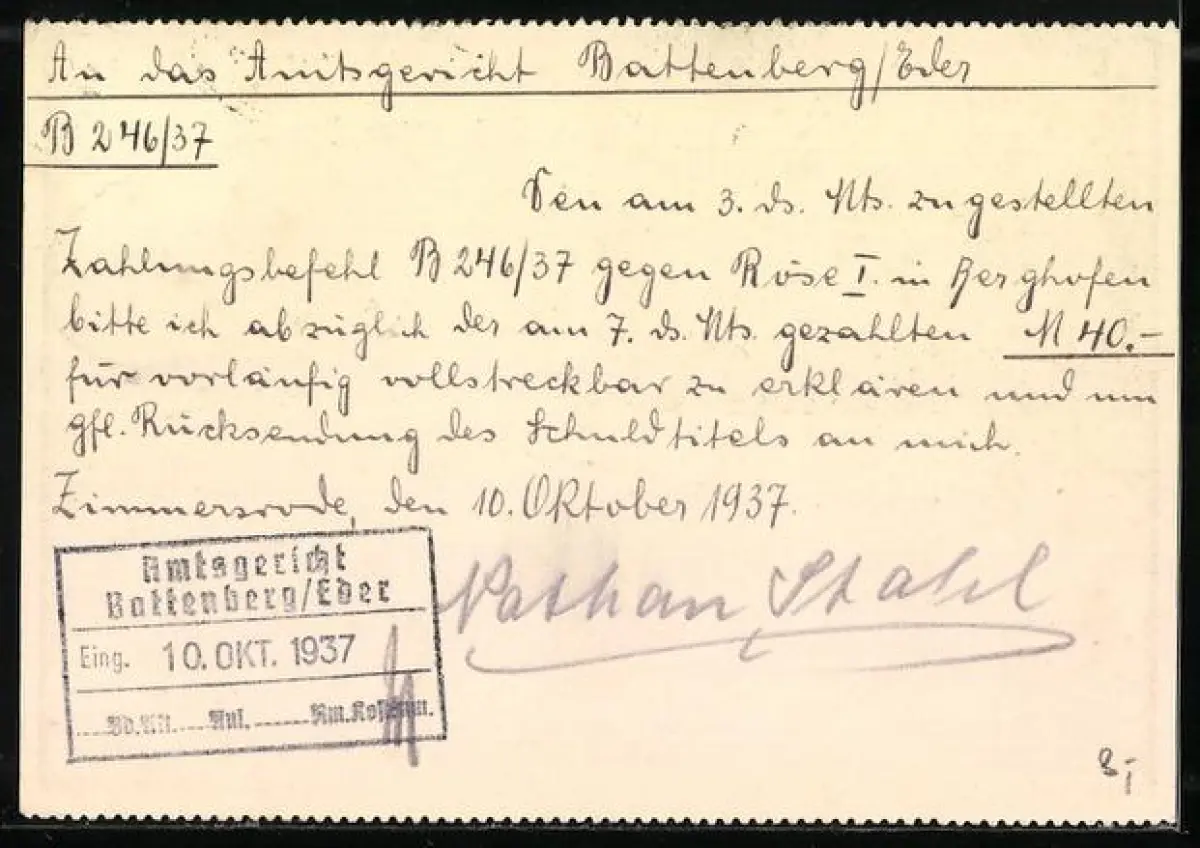 An das Amtsgericht Battenberg/Eder
B 246/37
Den am 3. ds. Mts. zugestellten
Zahlungsbefehl B 246/37 gegen Röse I. in Berghofen
bitte ich abzüglich der am 7. ds. Mts. gezahlten M 40.-
für vorläufig vollstreckbar zu erklären und um
gfl. Rücksendung des Schuldtitels an mich.
Zimmersrode, den 10. Oktober 1937.
Nathan Stahl
Amtsgericht
Battenberg/Eder
Eing. 10. OKT. 1937
Anl. Rm.